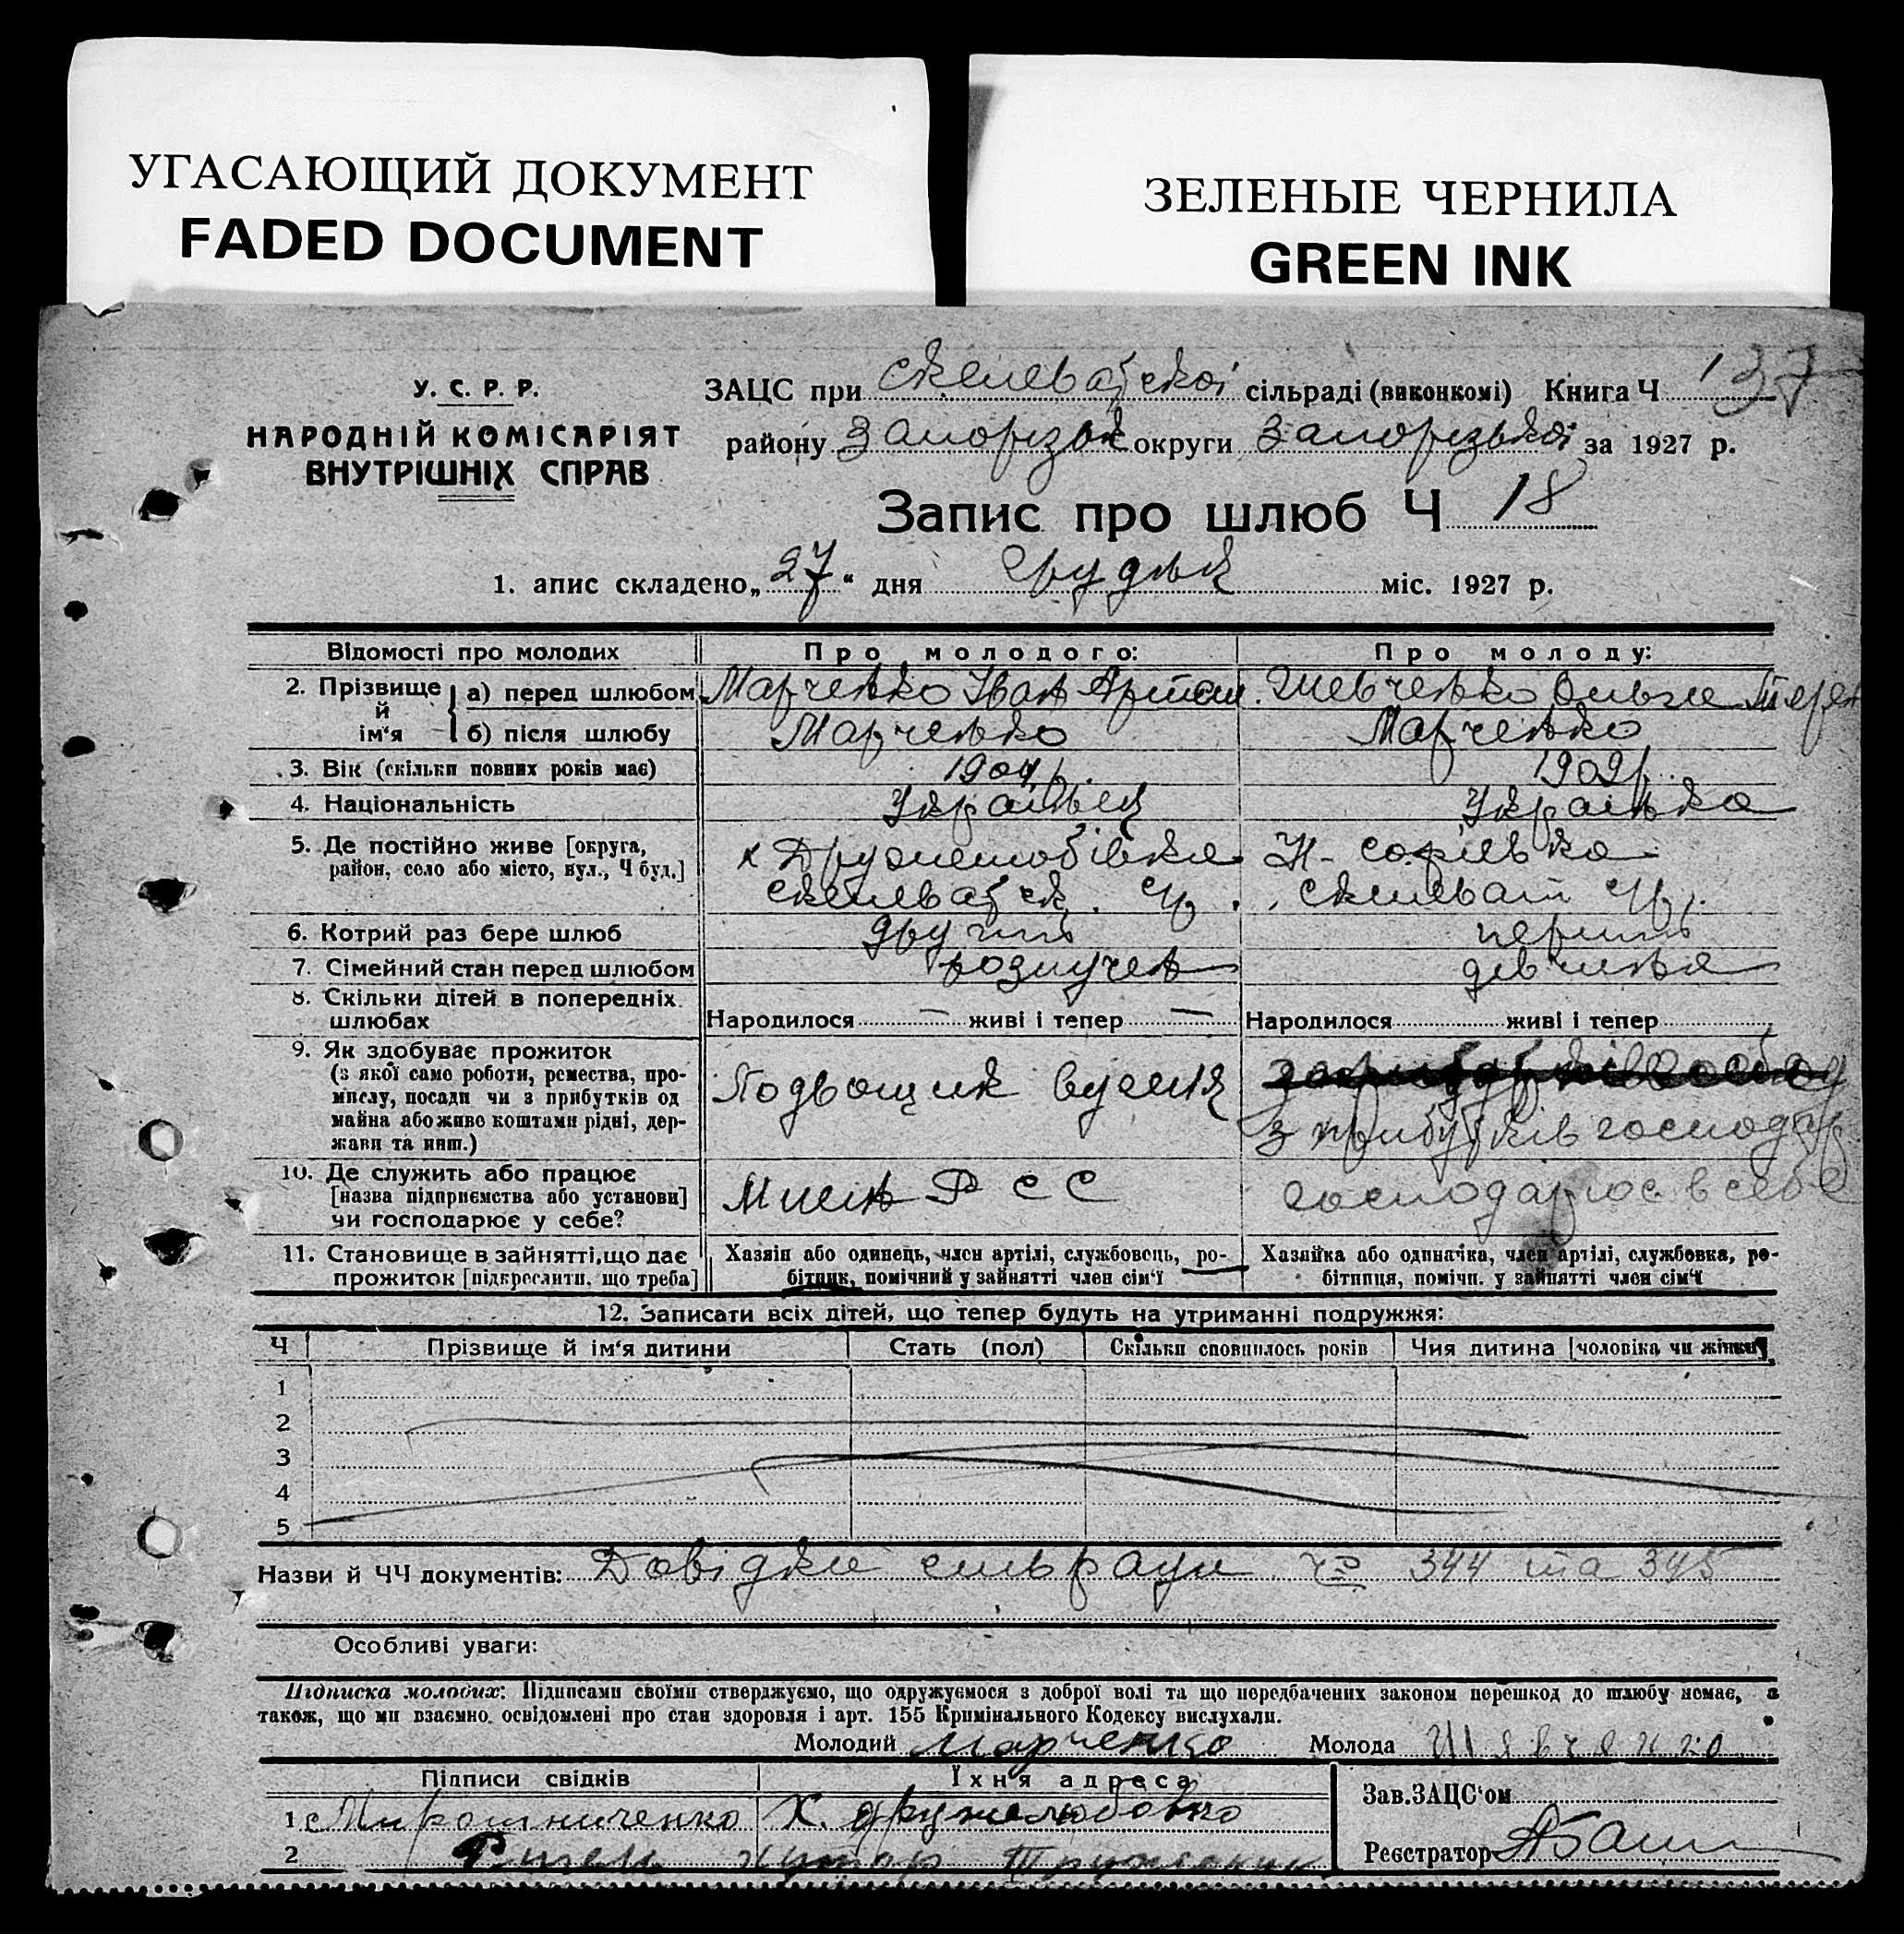 УГАСАЮЩИЙ ДОКУМЕНТ
FADED DOCUMENT
ЗЕЛЕНЫЕ ЧЕРНИЛА
GREEN INK
У. С. Р. Р.
НАРОДНІЙ КОМІСАРІЯТ
ВНУТРІШНІХ СПРАВ
ЗАЦС при Скелеватской сільраді (виконкомі) Книга Ч 137
району Запорізьк округи Запорізької за 1927 р.
Запис про шлюб Ч 18
1. апис складено „27“ дня Грудня міс. 1927 р.
Відомості про молодих Про молодого: Про молоду:
2. Прізвище й ім‘я а) перед шлюбом Марченко Іван Артем. Шевченко Ольга Терен
б) після шлюбу Марченко Марченко
3. Вік (скільки повних років має) 1904р. 1909р.
4. Національність Українец Українка
5. Де постійно живе [округа, район, село або місто, вул., Ч буд.] х Дружелюбівка Н-софіевка
Скелеватск. Скелеват
6. Котрий раз бере шлюб другий перший
7. Сімейний стан перед шлюбом розлучен дівчина
8. Скільки дітей в попередніх шлюбах Народилося — живі і тепер — Народилося живі і тепер
9. Як здобуває прожиток
(з якої само роботи, ремества, промислу, посади чи з прибутків од майна або живе коштами рідні, держави та инш.) Подвощик вугля з прибутків господар
10. Де служить або працює
[назва підприємства або установи]
чи господарює у себе? Млин Р С С господарює в себе
11. Становище в зайнятті, що дає прожиток [підкреслити, що треба] Хазяін або одинець, член артілі, службовець, робітник, помічний у зайнятті член сім‘ї Хазяйка або одиначка, член артілі, службовка, робітниця, помічн. у зайнятті член сім‘ї
12. Записати всіх дітей, що тепер будуть на утриманні подружжя:
Ч Прізвище й ім‘я дитини Стать (пол) Скільки сповнилось років Чия дитина [чоловіка чи жінки]
1
2
3
4
5
Назви й ЧЧ документів: Довідки сильради 344 та 345
Особливі уваги:
Підписка молодих: Підписами своїми стверджуємо, що одружуємося з доброї волі та що передбачених законом перешкод до шлюбу немає, а
також, що ми взаємно освідомлені про стан здоровля і арт. 155 Кримінального Кодексу вислухали.
Молодий Марченко Молода Шявчянко
Підписи свідків Їхня адреса
1 Мирошниченко Х. дружелюбовко
2 хутор
Зав. ЗАЦС‘ом
Реєстратор